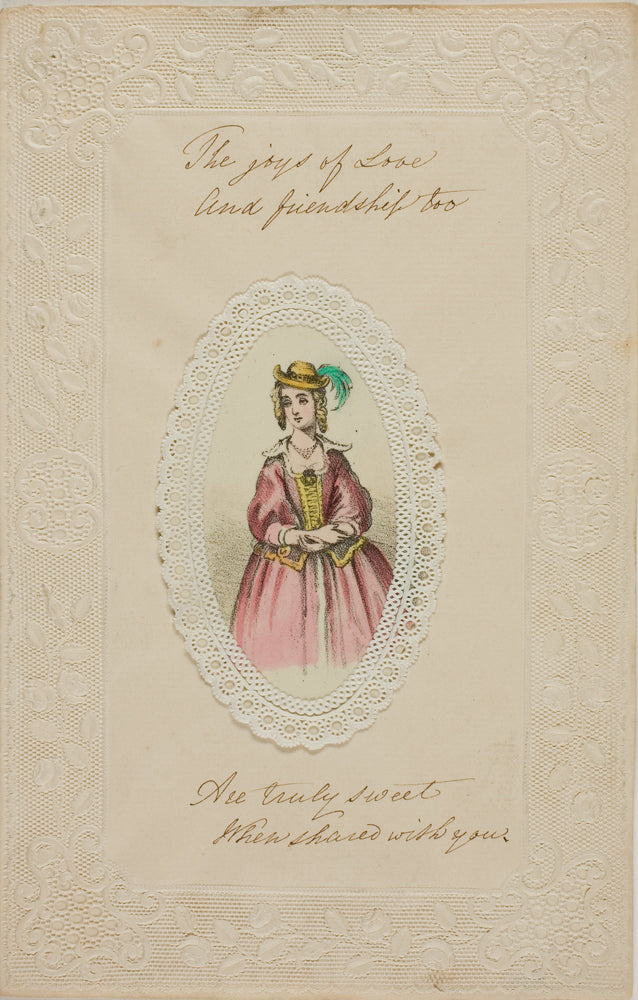 The joys of Love
And friendship too
Are truly sweet
When shared with you.